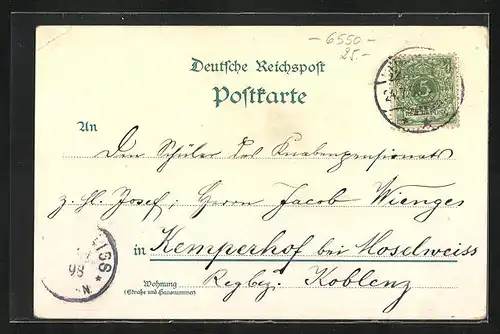 -6550-
25.-
Deutsche Reichspost
Postkarte
An
Den Schüler des Knabenpensionats
z. hl. Josef, Herrn Jacob Wienges
in Kemperhof bei Moselweiss
Wohnung
(Straße und Hausnummer)
Regbez. Koblenz
5
ISS *
98